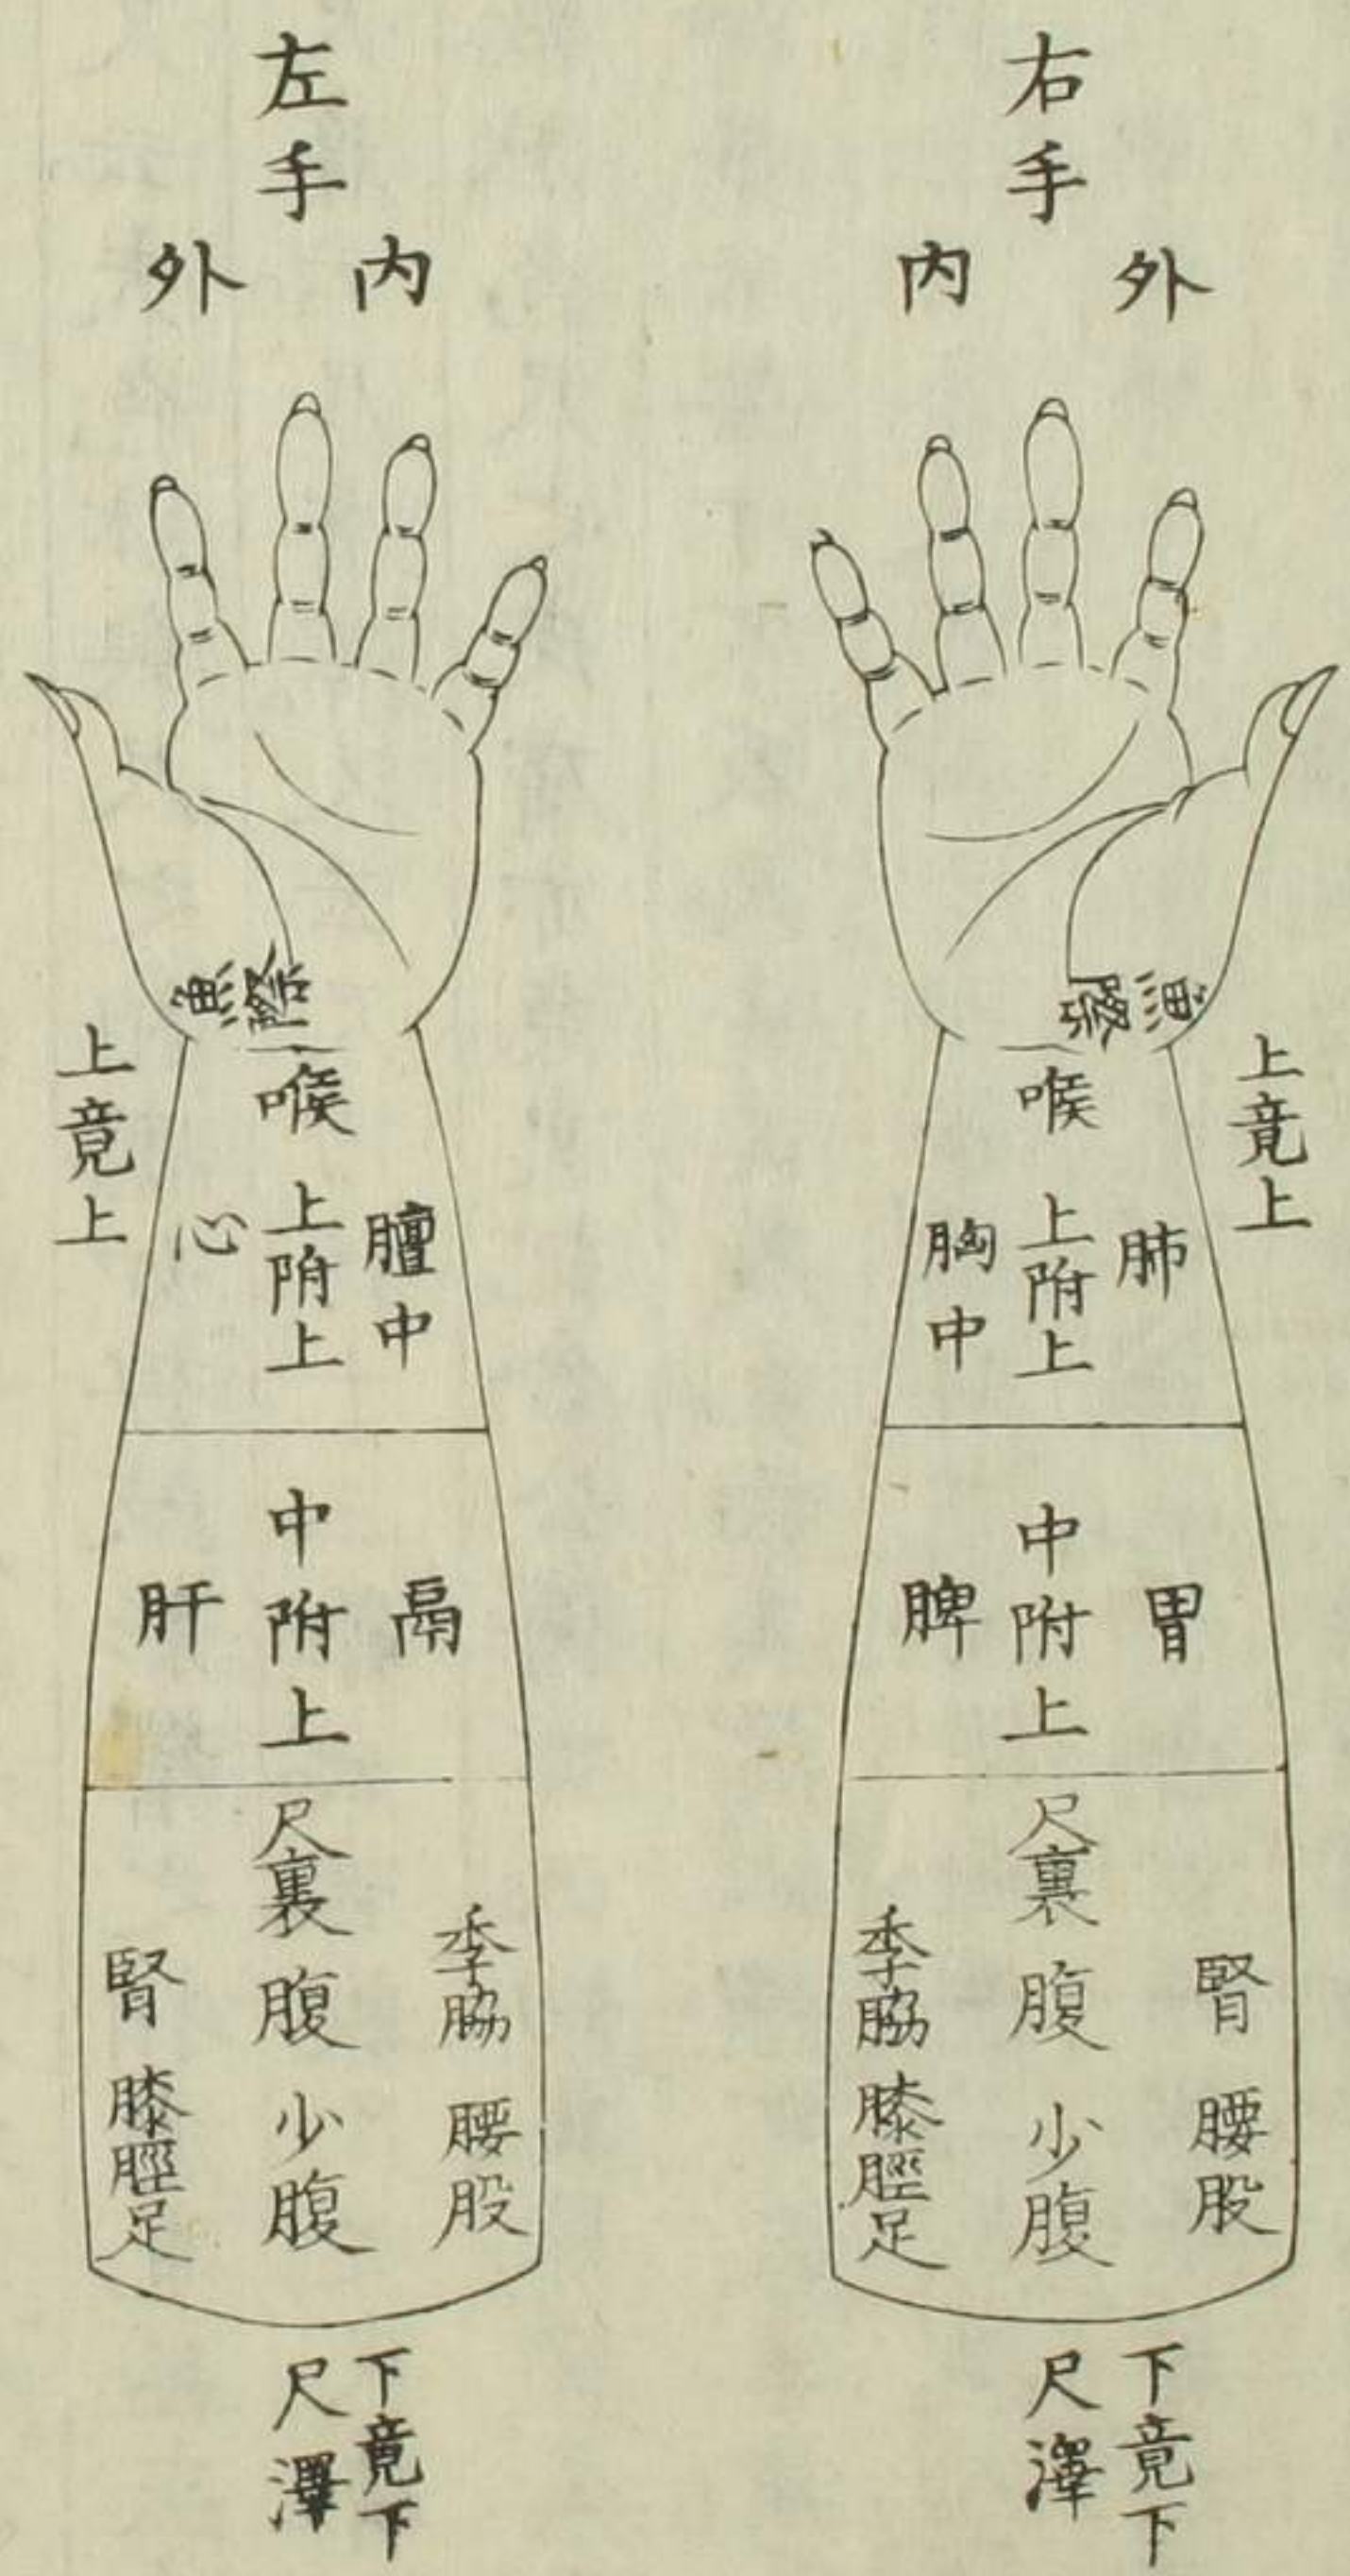 右手
外
内
魚際
上竟上
喉
肺
上附上
胸中
胃
中附上
脾
尺裏
腎
腹
季脇
腰股
少腹
膝脛足
下竟下
尺澤
左手
内
外
魚際
上竟上
喉
膻中
上附上
心
鬲
中附上
肝
尺裏
季脇
腹
腎
腰股
少腹
膝脛足
下竟下
尺澤